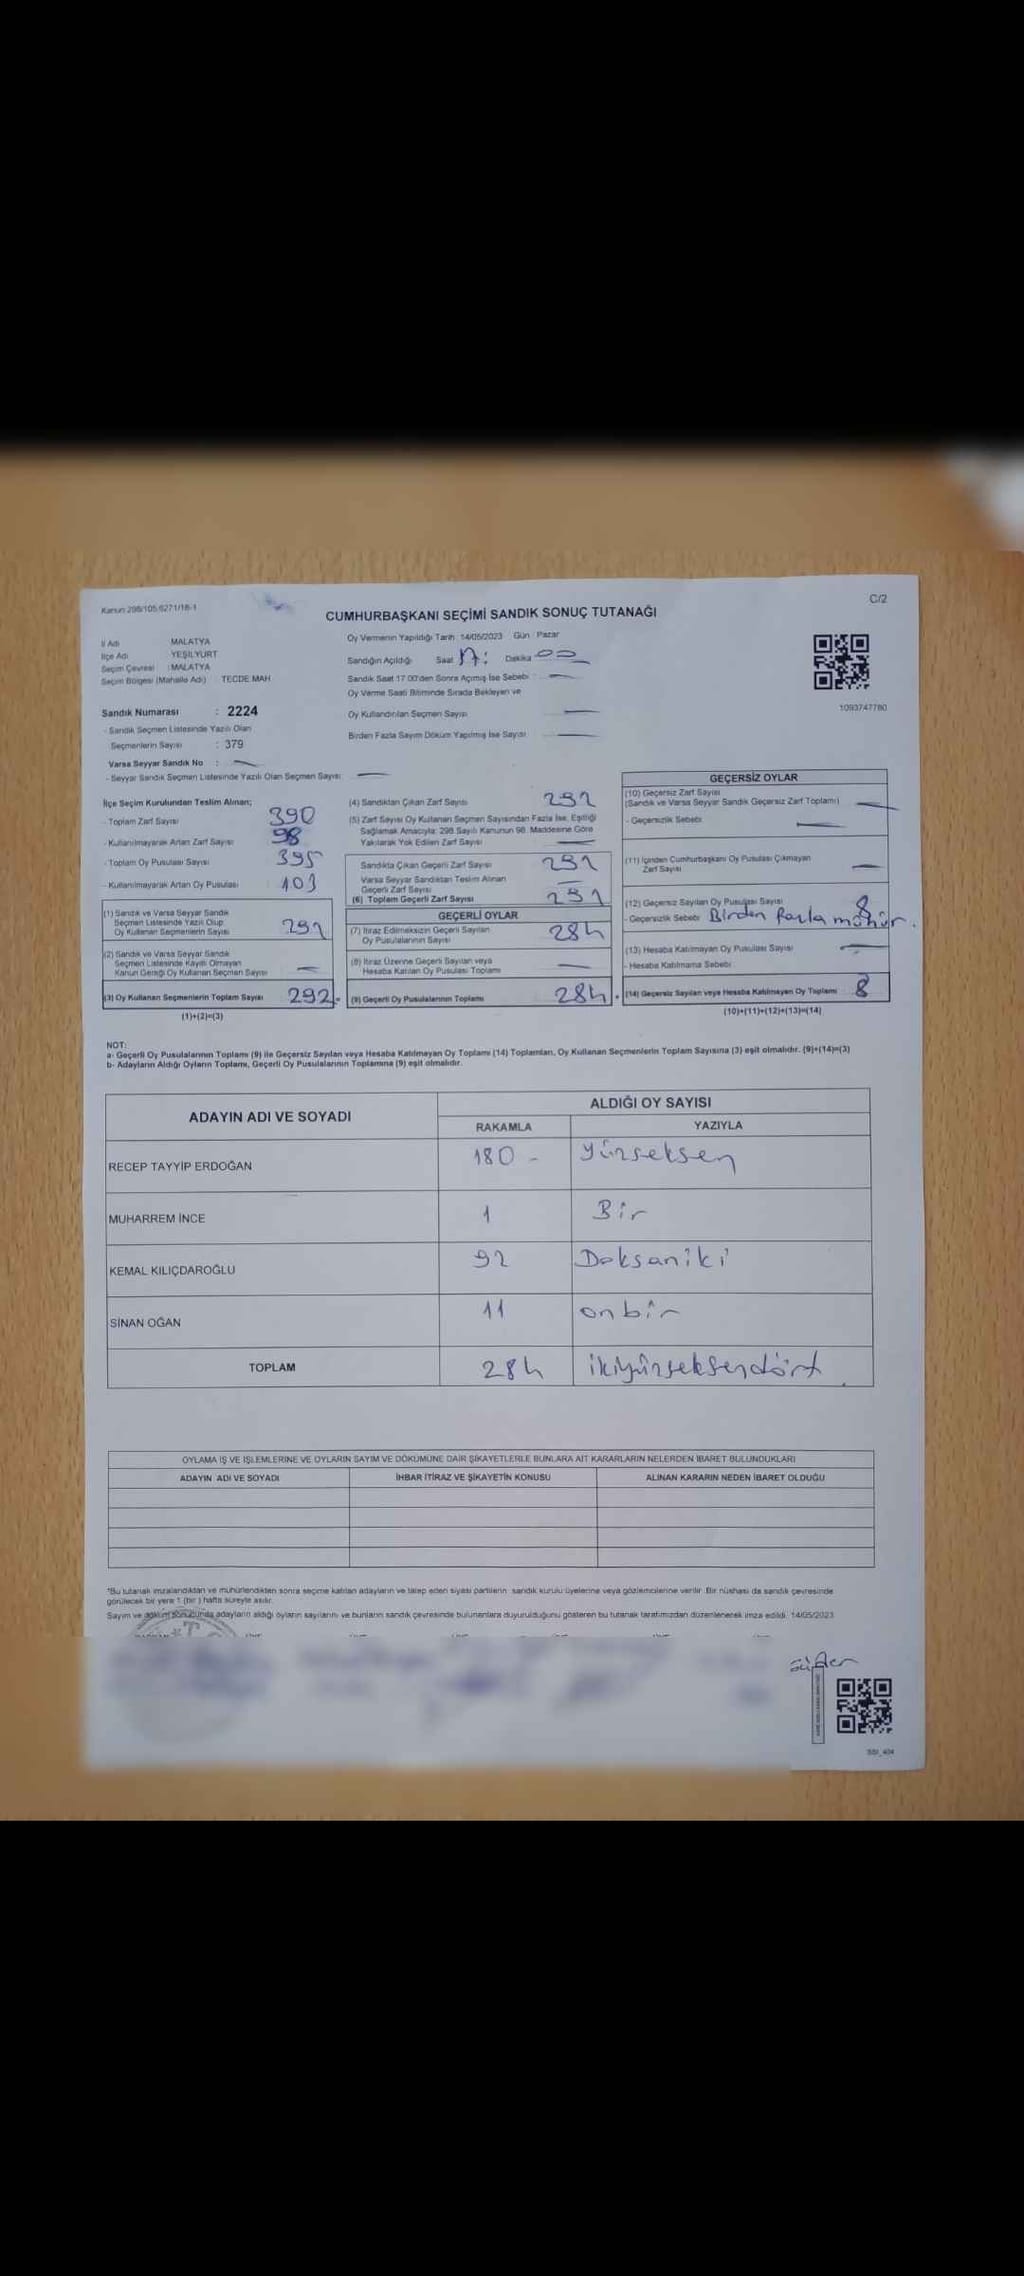 Kanun 298/105 6271/18-1
C/2
CUMHURBAŞKANI SEÇİMİ SANDIK SONUÇ TUTANAĞI
İl Adı MALATYA
İlçe Adı YEŞİLYURT
Seçim Çevresi : MALATYA
Seçim Bölgesi (Mahalle Adı) TECDE MAH
Sandık Numarası : 2224
- Sandık Seçmen Listesinde Yazılı Olan
Seçmenlerin Sayısı : 379
Varsa Seyyar Sandık No : —
- Seyyar Sandık Seçmen Listesinde Yazılı Olan Seçmen Sayısı —
Oy Vermenin Yapıldığı Tarih 14/05/2023 Gün Pazar
Sandığın Açıldığı Saat 17: Dakika 00
Sandık Saat 17 00'den Sonra Açımış İse Sebebi —
Oy Verme Saati Bitiminde Sırada Bekleyen ve
Oy Kullandırılan Seçmen Sayısı —
Birden Fazla Sayım Döküm Yapılmış İse Sayısı —
1093747780
İlçe Seçim Kurulundan Teslim Alınan;
- Toplam Zarf Sayısı 390
- Kullanılmayarak Artan Zarf Sayısı 98
- Toplam Oy Pusulası Sayısı 395
- Kullanılmayarak Artan Oy Pusulası 103
(1) Sandık ve Varsa Seyyar Sandık
Seçmen Listesinde Yazılı Olup
Oy Kullanan Seçmenlerin Sayısı 292
(2) Sandık ve Varsa Seyyar Sandık
Seçmen Listesinde Kayıtlı Olmayan
Kanun Gereği Oy Kullanan Seçmen Sayısı —
(3) Oy Kullanan Seçmenlerin Toplam Sayısı 292
(1)+(2)=(3)
(4) Sandıktan Çıkan Zarf Sayısı 292
(5) Zarf Sayısı Oy Kullanan Seçmen Sayısından Fazla İse, Eşitliği
Sağlamak Amacıyla; 298 Sayılı Kanunun 98. Maddesine Göre
Yakılarak Yok Edilen Zarf Sayısı —
Sandıkta Çıkan Geçerli Zarf Sayısı 292
Varsa Seyyar Sandıktan Teslim Alınan
Geçerli Zarf Sayısı —
(6) Toplam Geçerli Zarf Sayısı 292
GEÇERLİ OYLAR
(7) İtiraz Edilmeksizin Geçerli Sayılan
Oy Pusulalarının Sayısı 284
(8) İtiraz Üzerine Geçerli Sayılan veya
Hesaba Katılan Oy Pusulası Toplamı —
(9) Geçerli Oy Pusulalarının Toplamı 284
GEÇERSİZ OYLAR
(10) Geçersiz Zarf Sayısı
(Sandık ve Varsa Seyyar Sandık Geçersiz Zarf Toplamı) —
- Geçersizlik Sebebi —
(11) İçinden Cumhurbaşkanı Oy Pusulası Çıkmayan
Zarf Sayısı —
(12) Geçersiz Sayılan Oy Pusulası Sayısı 8
- Geçersizlik Sebebi Birden fazla mühür.
(13) Hesaba Katılmayan Oy Pusulası Sayısı —
- Hesaba Katılmama Sebebi
(14) Geçersiz Sayılan veya Hesaba Katılmayan Oy Toplamı 8
(10)+(11)+(12)+(13)=(14)
NOT:
a- Geçerli Oy Pusulalarının Toplamı (9) ile Geçersiz Sayılan veya Hesaba Katılmayan Oy Toplamı (14) Toplamları, Oy Kullanan Seçmenlerin Toplam Sayısına (3) eşit olmalıdır. (9)+(14)=(3)
b- Adayların Aldığı Oyların Toplamı, Geçerli Oy Pusulalarının Toplamına (9) eşit olmalıdır.
ADAYIN ADI VE SOYADI
ALDIĞI OY SAYISI
RAKAMLA YAZIYLA
RECEP TAYYİP ERDOĞAN 180 - Yüzseksen
MUHARREM İNCE 1 Bir
KEMAL KILIÇDAROĞLU 92 Doksaniki
SİNAN OĞAN 11 onbir
TOPLAM 284 ikiyüzseksendört
OYLAMA İŞ VE İŞLEMLERİNE VE OYLARIN SAYIM VE DÖKÜMÜNE DAİR ŞİKAYETLERLE BUNLARA AİT KARARLARIN NELERDEN İBARET BULUNDUKLARI
ADAYIN ADI VE SOYADI İHBAR İTİRAZ VE ŞİKAYETİN KONUSU ALINAN KARARIN NEDEN İBARET OLDUĞU
*Bu tutanak imzalandıktan ve mühürlendikten sonra seçime katılan adayların ve talep eden siyasi partilerin sandık kurulu üyelerine veya gözlemcilerine verilir. Bir nüshası da sandık çevresinde
görülecek bir yere 1 (bir ) hafta süreyle asılır.
Sayım ve döküm sonucunda adayların aldığı oyların sayılarını ve bunların sandık çevresinde bulunanlara duyurulduğunu gösteren bu tutanak tarafımızdan düzenlenerek imza edildi. 14/05/2023